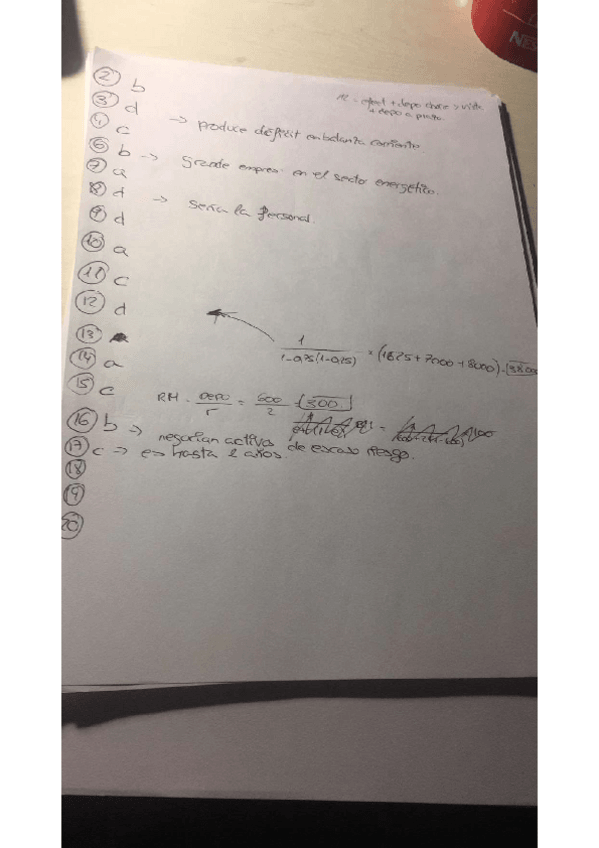 NES
② b
M2 = efect + depo
+ depo a plazo
③ d
④ c → produce déficit en balanza corriente.
⑥ b → Grande empres. en el sector energético.
⑦ a
⑧ d → Sería la personal.
⑨ d
⑩ a
⑪ c
⑫ d
⑬
1 / 1-0,75(1-0,25) = (1825 + 7000 + 8000) =
⑭ a
⑮ c
RH = / r = 600 / 2 = 300
⑯ b → negocian activos de escaso riesgo.
⑰ c → es hasta 2 años.
⑱
⑲
⑳